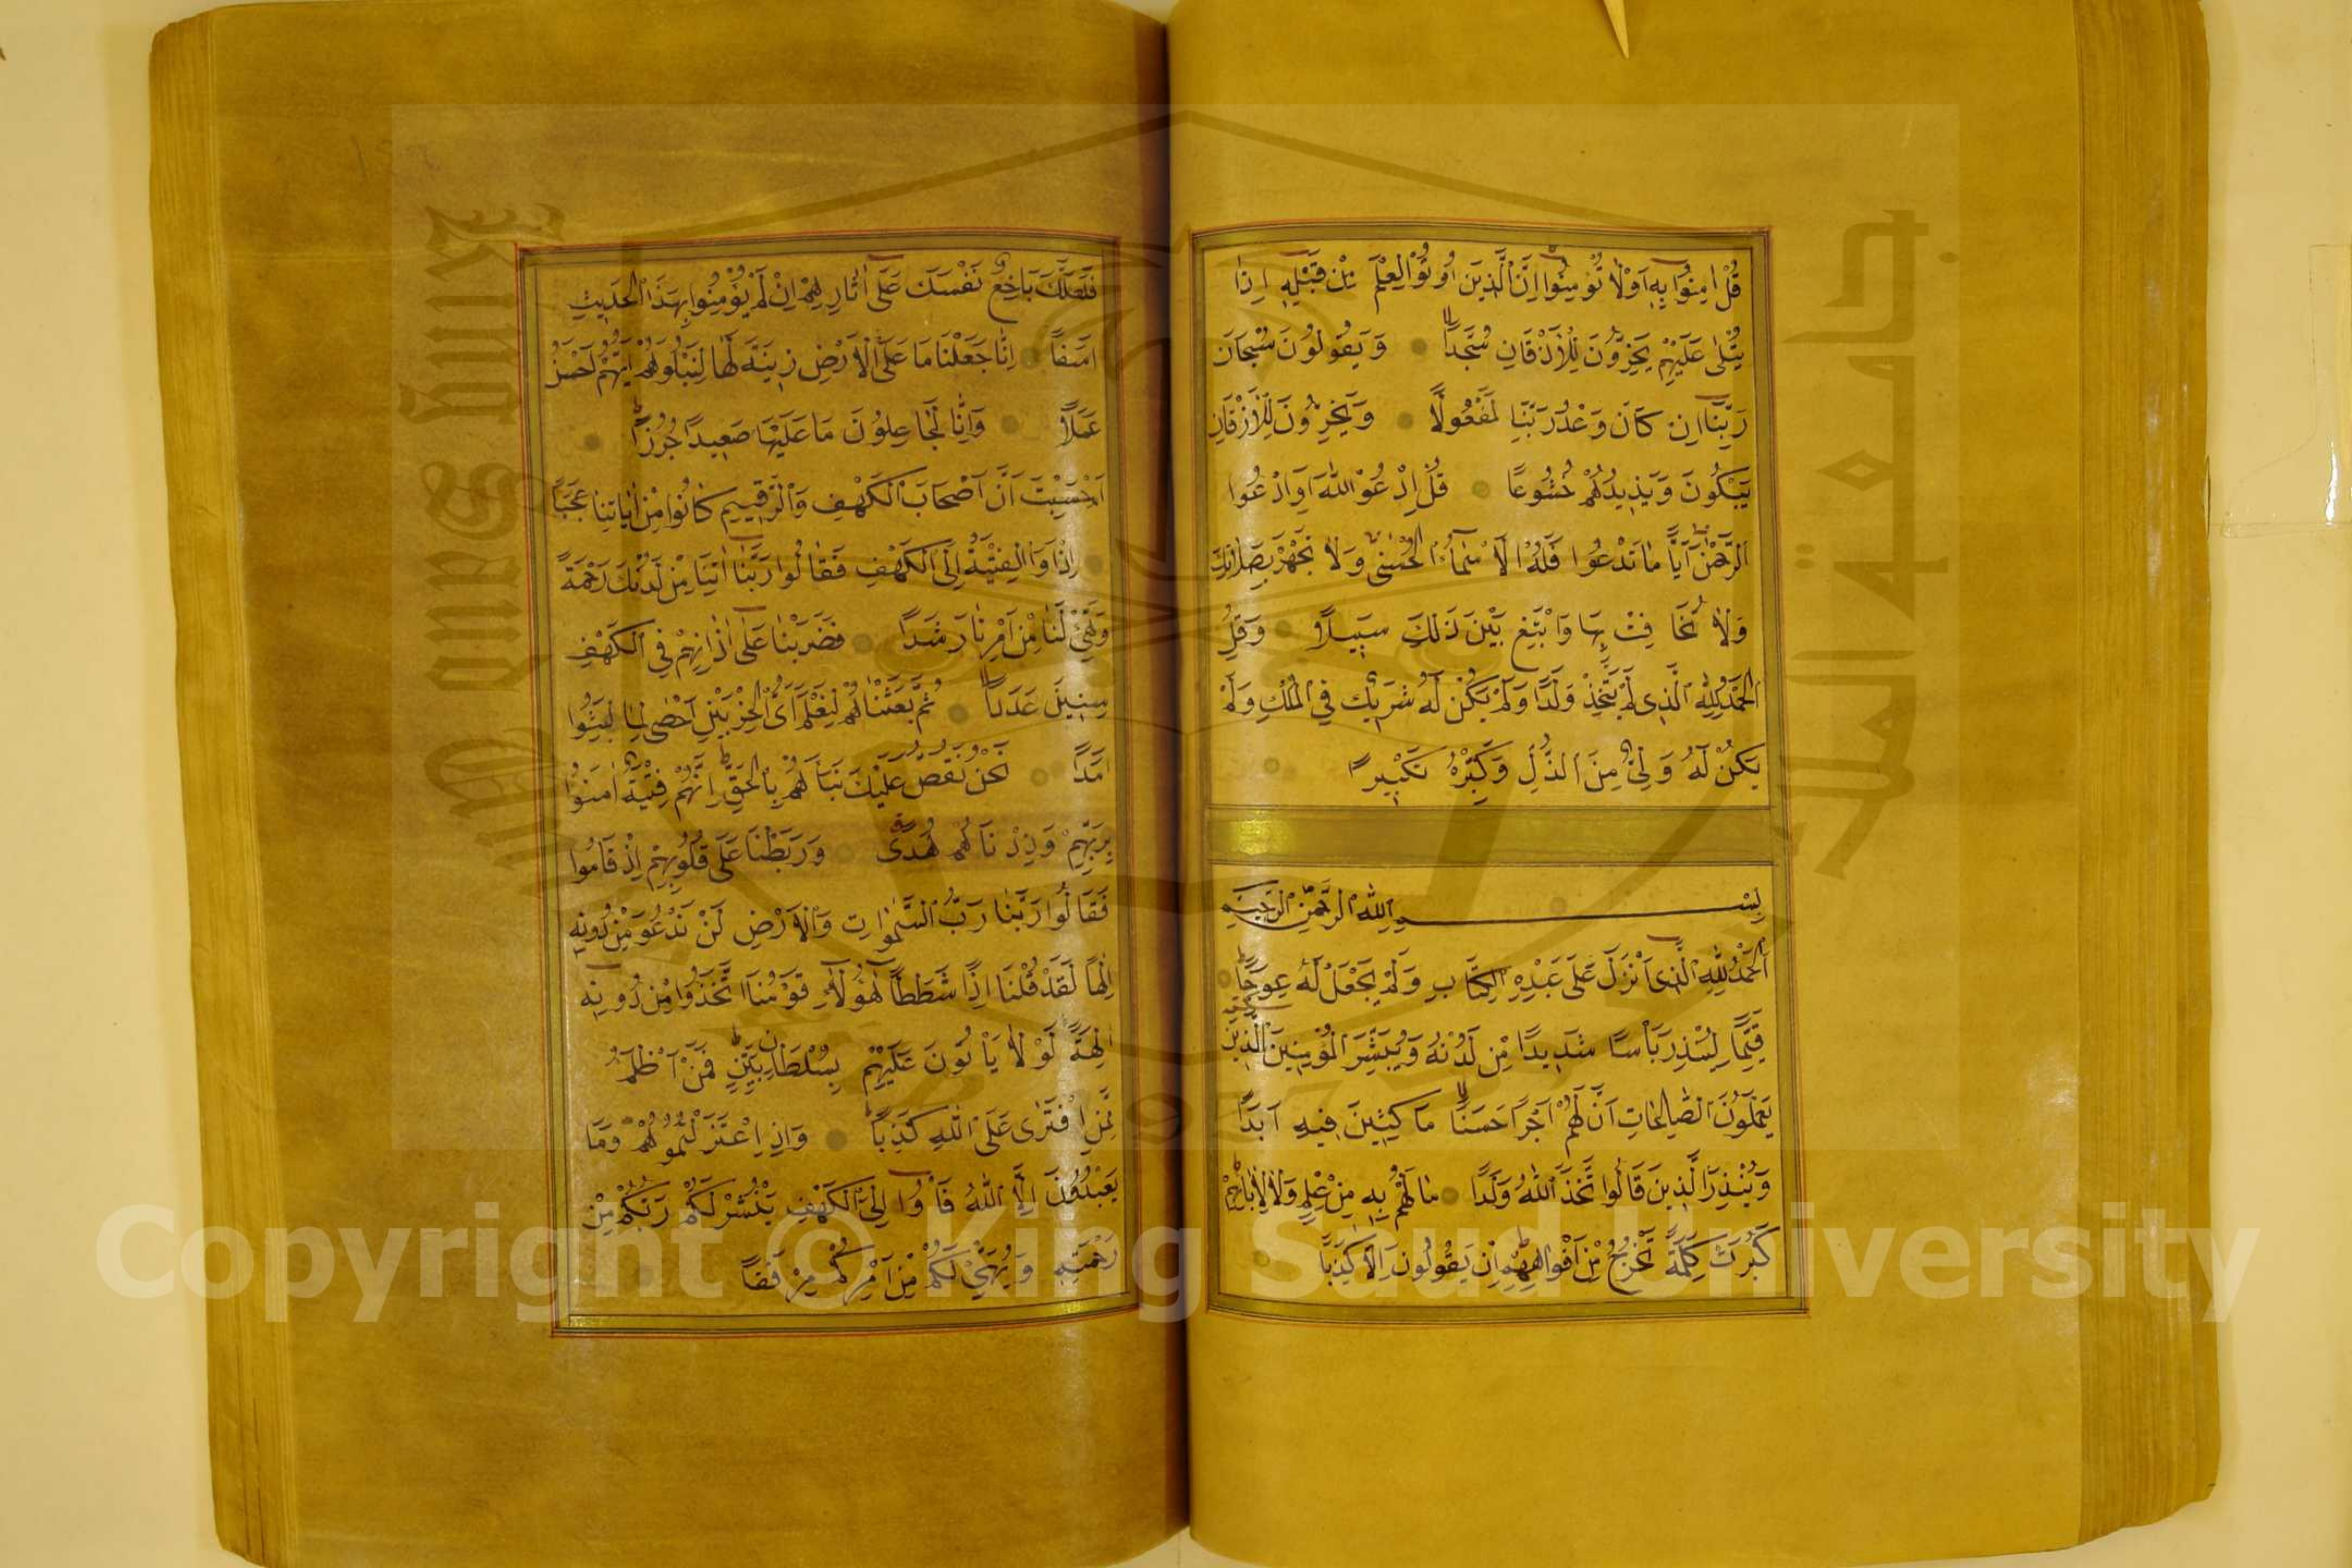 قُلْ اٰمِنُوا بِهِ اَوْ لَا تُؤْمِنُوا اِنَّ الَّذِينَ اُوتُوا الْعِلْمَ مِنْ قَبْلِهِ اِذَا
يُتْلٰى عَلَيْهِمْ يَخِرُّونَ لِلْاَذْقَانِ سُجَّدًا وَيَقُولُونَ سُبْحَانَ
رَبِّنَا اِنْ كَانَ وَعْدُ رَبِّنَا لَمَفْعُولًا وَيَخِرُّونَ لِلْاَذْقَانِ
يَبْكُونَ وَيَزِيدُهُمْ خُشُوعًا قُلِ ادْعُوا اللّٰهَ اَوِ ادْعُوا
الرَّحْمٰنَ اَيًّا مَا تَدْعُوا فَلَهُ الْاَسْمَاءُ الْحُسْنٰى وَلَا تَجْهَرْ بِصَلَاتِكَ
وَلَا تُخَافِتْ بِهَا وَابْتَغِ بَيْنَ ذٰلِكَ سَبِيلًا وَقُلِ
الْحَمْدُ لِلّٰهِ الَّذِى لَمْ يَتَّخِذْ وَلَدًا وَلَمْ يَكُنْ لَهُ شَرِيكٌ فِي الْمُلْكِ وَلَمْ
يَكُنْ لَهُ وَلِىٌّ مِنَ الذُّلِّ وَكَبِّرْهُ تَكْبِيرًا
بِسْمِ اللّٰهِ الرَّحْمٰنِ الرَّحِيمِ
اَلْحَمْدُ لِلّٰهِ الَّذِى اَنْزَلَ عَلٰى عَبْدِهِ الْكِتَابَ وَلَمْ يَجْعَلْ لَهُ عِوَجًا
قَيِّمًا لِيُنْذِرَ بَاْسًا شَدِيدًا مِنْ لَدُنْهُ وَيُبَشِّرَ الْمُؤْمِنِينَ الَّذِينَ
يَعْمَلُونَ الصَّالِحَاتِ اَنَّ لَهُمْ اَجْرًا حَسَنًا مَاكِثِينَ فِيهِ اَبَدًا
وَيُنْذِرَ الَّذِينَ قَالُوا اتَّخَذَ اللّٰهُ وَلَدًا مَا لَهُمْ بِهِ مِنْ عِلْمٍ وَلَا لِاٰبَائِهِمْ
كَبُرَتْ كَلِمَةً تَخْرُجُ مِنْ اَفْوَاهِهِمْ اِنْ يَقُولُونَ اِلَّا كَذِبًا
فَلَعَلَّكَ بَاخِعٌ نَفْسَكَ عَلٰى اٰثَارِهِمْ اِنْ لَمْ يُؤْمِنُوا بِهٰذَا الْحَدِيثِ
اَسَفًا اِنَّا جَعَلْنَا مَا عَلَى الْاَرْضِ زِينَةً لَهَا لِنَبْلُوَهُمْ اَيُّهُمْ اَحْسَنُ
عَمَلًا وَاِنَّا لَجَاعِلُونَ مَا عَلَيْهَا صَعِيدًا جُرُزًا
اَمْ حَسِبْتَ اَنَّ اَصْحَابَ الْكَهْفِ وَالرَّقِيمِ كَانُوا مِنْ اٰيَاتِنَا عَجَبًا
اِذْ اَوَى الْفِتْيَةُ اِلَى الْكَهْفِ فَقَالُوا رَبَّنَا اٰتِنَا مِنْ لَدُنْكَ رَحْمَةً
وَهَيِّئْ لَنَا مِنْ اَمْرِنَا رَشَدًا فَضَرَبْنَا عَلٰى اٰذَانِهِمْ فِي الْكَهْفِ
سِنِينَ عَدَدًا ثُمَّ بَعَثْنَاهُمْ لِنَعْلَمَ اَىُّ الْحِزْبَيْنِ اَحْصٰى لِمَا لَبِثُوا
اَمَدًا نَحْنُ نَقُصُّ عَلَيْكَ نَبَاَهُمْ بِالْحَقِّ اِنَّهُمْ فِتْيَةٌ اٰمَنُوا
بِرَبِّهِمْ وَزِدْنَاهُمْ هُدًى وَرَبَطْنَا عَلٰى قُلُوبِهِمْ اِذْ قَامُوا
فَقَالُوا رَبُّنَا رَبُّ السَّمٰوَاتِ وَالْاَرْضِ لَنْ نَدْعُوَ مِنْ دُونِهِ
اِلٰهًا لَقَدْ قُلْنَا اِذًا شَطَطًا هٰؤُلَاءِ قَوْمُنَا اتَّخَذُوا مِنْ دُونِهِ
اٰلِهَةً لَوْلَا يَاْتُونَ عَلَيْهِمْ بِسُلْطَانٍ بَيِّنٍ فَمَنْ اَظْلَمُ
مِمَّنِ افْتَرٰى عَلَى اللّٰهِ كَذِبًا وَاِذِ اعْتَزَلْتُمُوهُمْ وَمَا
يَعْبُدُونَ اِلَّا اللّٰهَ فَاْوُوا اِلَى الْكَهْفِ يَنْشُرْ لَكُمْ رَبُّكُمْ مِنْ
رَحْمَتِهِ وَيُهَيِّئْ لَكُمْ مِنْ اَمْرِكُمْ مِرْفَقًا
جامعة الملك
King Saud
Copyright © King Saud University